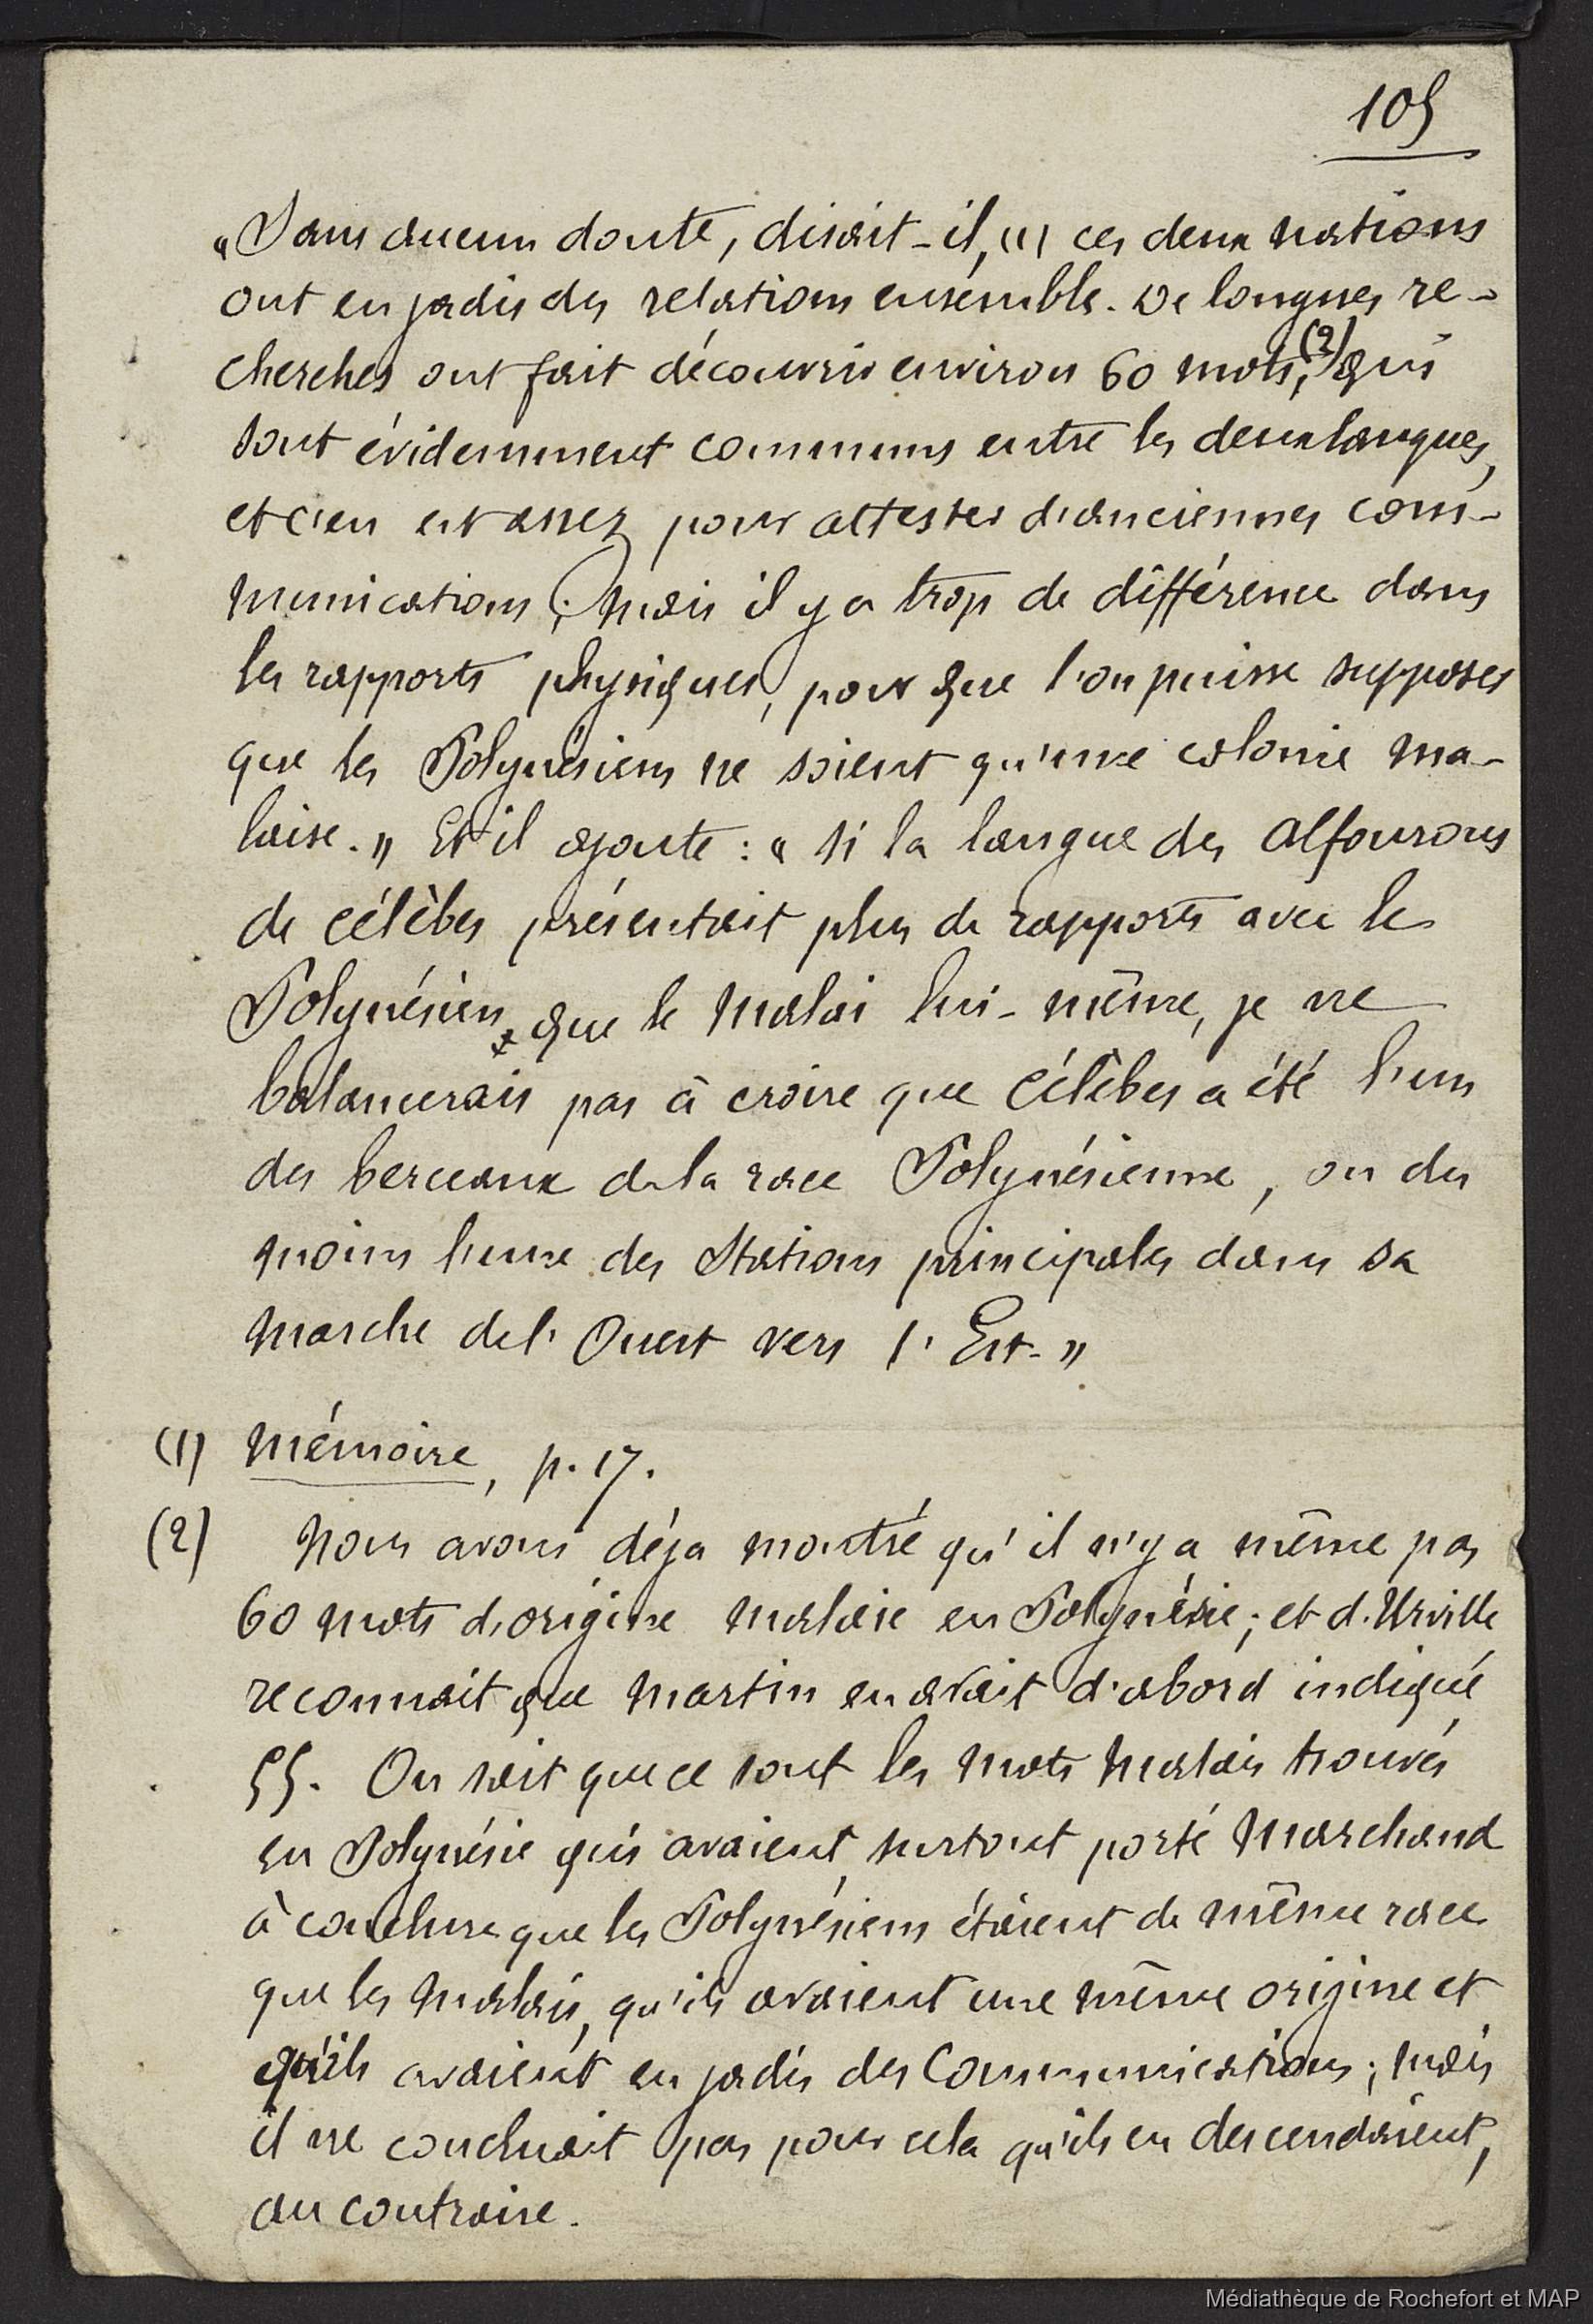 105
« Sans aucun doute, disait-il, (1) ces deux nations
ont eu jadis des relations ensemble. De longues re-
cherches ont fait découvrir environ 60 mots, (2) qui
sont évidemment communs entre les deux langues,
et c'en est assez pour attester d'anciennes com-
munications ; mais il y a trop de différence dans
les rapports physiques, pour que l'on puisse supposer
que les Polynésiens ne soient qu'une colonie ma-
laise. » Et il ajoute : « si la langue des Alfourous
de Célèbes présentait plus de rapports avec le
Polynésien que le Malai lui-même, je ne
balancerais pas à croire que Célèbes a été l'un
des berceaux de la race Polynésienne, ou du
moins l'une des Stations principales dans sa
marche de l'Ouest vers l'Est. »
(1) Mémoire, p. 17.
(2) Nous avons déja montré qu'il n'y a même pas
60 mots d'origine malaise en Polynésie ; et d'Urville
reconnait que Martin en avait d'abord indiqué
55. On sait que ce sont les mots Malais trouvés
en Polynésie qui avaient surtout porté Marchand
à conclure que les Polynésiens étaient de même race
que les Malais, qu'ils avaient une même origine et
qu'ils avaient eu jadis des Communications ; mais
il ne concluait pas pour cela qu'ils en descendaient,
au contraire.
Médiathèque de Rochefort et MAP